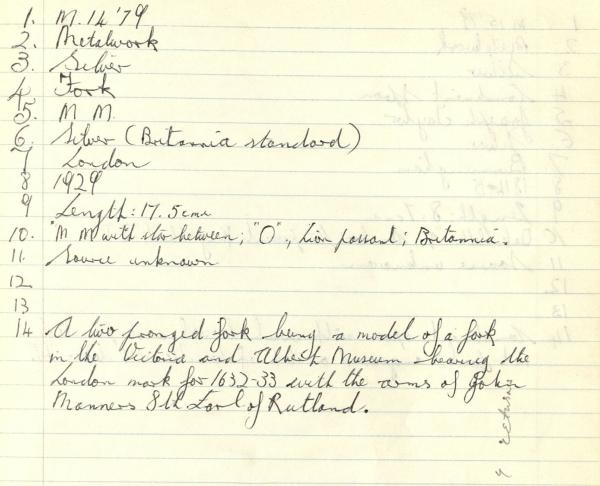 1. M.14'79
2. Metalwork
3. Silver
4 Fork
5. M M.
6. Silver (Britannia standard)
7 London
8 1929
9 Length: 17.5cms
10. "M M with star between; "O", Lion passant; Britannia.
11. Source unknown
12
13
14 A two pronged fork being a model of a fork
in the Victoria and Albert Museum bearing the
London mark for 1632-33 with the arms of John
Manners 8th Earl of Rutland.